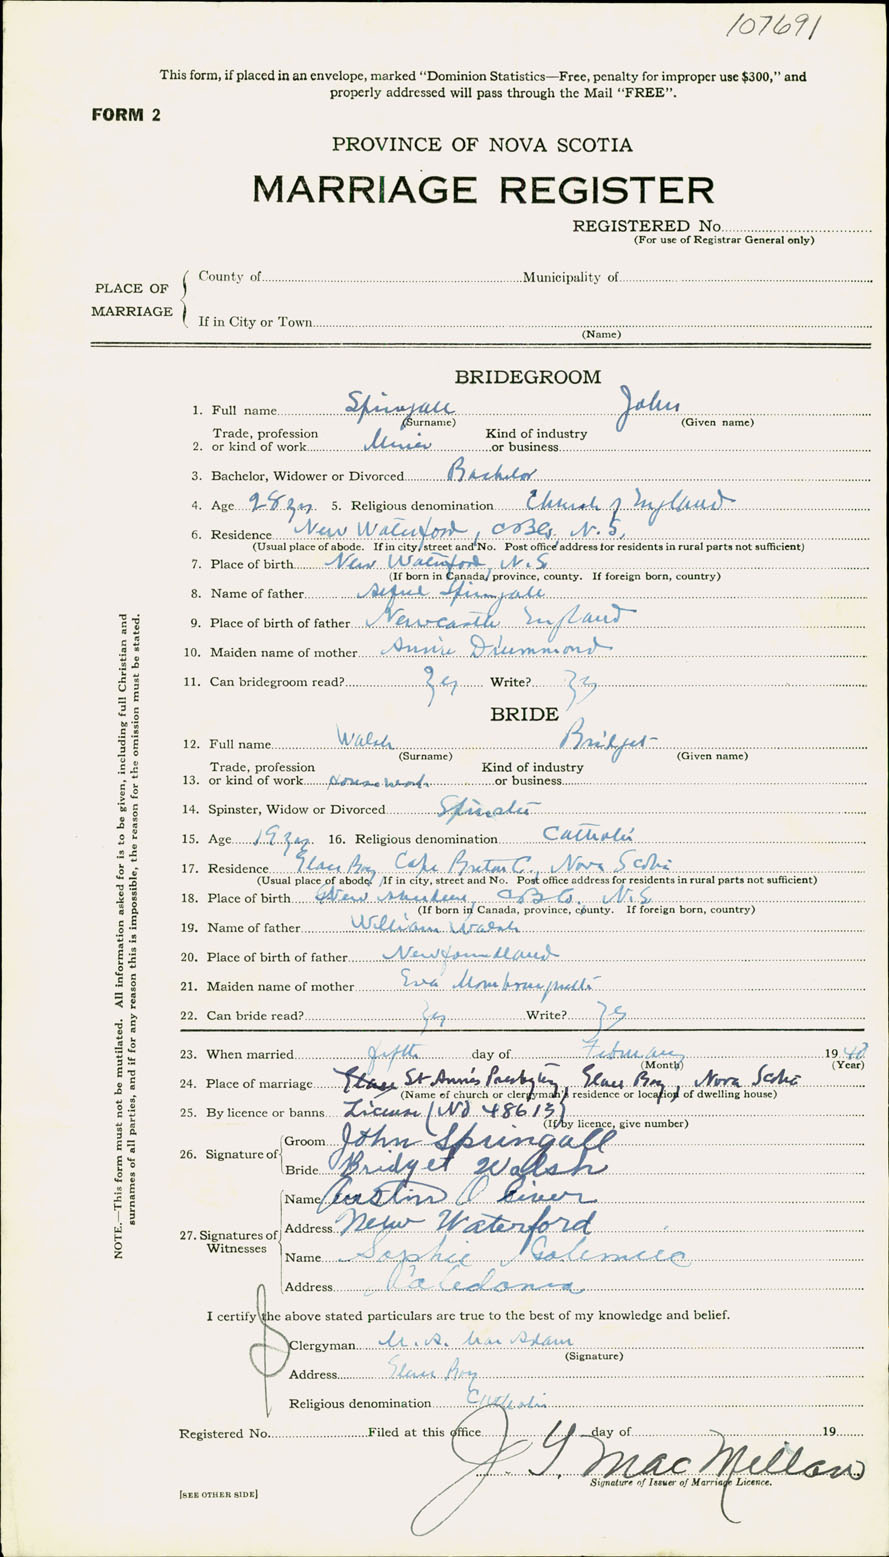 107691
This form, if placed in an envelope, marked "Dominion Statistics—Free, penalty for improper use $300," and
properly addressed will pass through the Mail "FREE".
FORM 2
PROVINCE OF NOVA SCOTIA
MARRIAGE REGISTER
REGISTERED No.
(For use of Registrar General only)
PLACE OF MARRIAGE
County of Municipality of
If in City or Town
(Name)
BRIDEGROOM
1. Full name Springall John
(Surname) (Given name)
Trade, profession Kind of industry
2. or kind of work Miner or business
3. Bachelor, Widower or Divorced Bachelor
4. Age 28 yrs 5. Religious denomination Church of England
6. Residence New Waterford, CBCo. N.S.
(Usual place of abode. If in city, street and No. Post office address for residents in rural parts not sufficient)
7. Place of birth New Waterford, N.S
(If born in Canada, province, county. If foreign born, country)
8. Name of father Springall
9. Place of birth of father Newcastle England
10. Maiden name of mother Annie Drummond
11. Can bridegroom read? Yes Write? Yes
BRIDE
12. Full name Walsh Bridget
(Surname) (Given name)
Trade, profession Kind of industry
13. or kind of work Housework or business
14. Spinster, Widow or Divorced Spinster
15. Age 19 yrs. 16. Religious denomination Catholic
17. Residence Glace Bay Cape Breton C., Nova Scotia
(Usual place of abode. If in city, street and No. Post office address for residents in rural parts not sufficient)
18. Place of birth New Aberdeen, CBCo. N.S
(If born in Canada, province, county. If foreign born, country)
19. Name of father William Walsh
20. Place of birth of father Newfoundland
21. Maiden name of mother Eva
22. Can bride read? Yes Write? Yes
23. When married fifth day of February 1940
(Month) (Year)
24. Place of marriage St Anne's Presbytery, Glace Bay, Nova Scotia
(Name of church or clergyman's residence or location of dwelling house)
25. By licence or banns License (No 48613)
(If by licence, give number)
26. Signature of
Groom John Springall
Bride Bridget Walsh
27. Signatures of Witnesses
Name Austin
Address New Waterford
Name Sophie
Address Caledonia
I certify the above stated particulars are true to the best of my knowledge and belief.
Clergyman M. A. MacAdam
(Signature)
Address Glace Bay
Religious denomination Catholic
Registered No. Filed at this office day of 19
J. Y. MacMillan
Signature of Issuer of Marriage Licence.
[SEE OTHER SIDE]
NOTE.—This form must not be mutilated. All information asked for is to be given, including full Christian and
surnames of all parties, and if for any reason this is impossible, the reason for the omission must be stated.